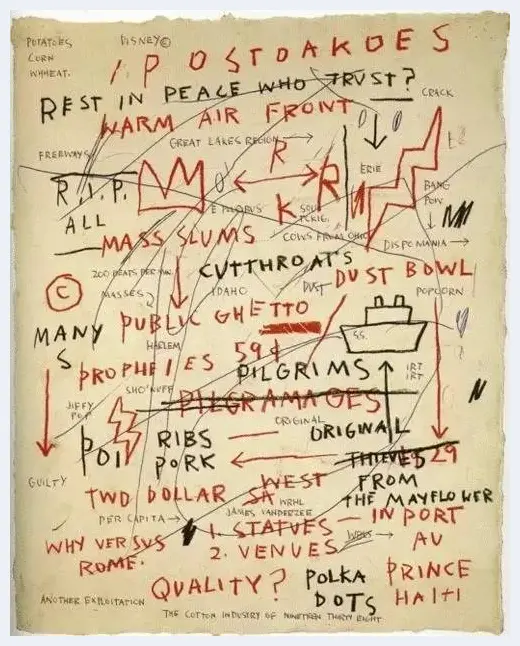 POTATOES DISNEY©
CORN
WHHEAT.
/P OSTOAKOES
REST IN PEACE WHO TRUST?
CRACK
WARM AIR FRONT
GREAT LAKES REGION
FREEWAYS
R
ERIE
R.I.P. R
BANG
POW.
ALL
K
COWS FROM OHIO
DISPOMANIA
MASS SLUMS
CUTTHROATS
200 BEATS PER MIN.
DUST BOWL
© MASSES IDAHO DUST POPCORN
PUBLIC GHETTO
MANY
S
HARLEM
S.S.
59¢
PROPHEIES
PILGRIMS
IRT
IRT
SHO'NUFF
JIFFY
POP
PILGRAMAGES
ORIGINAL
POI RIBS ORIGINAL
PORK THIEVES 29
GUILTY
WEST FROM
TWO DOLLAR SA THE MAYFLOWER
WRHL
JAMES VANDERZEE
PER CAPITA
1. STATUES — IN PORT
WHY VERSVS 2. VENUES AU
ROME.
QUALITY? POLKA PRINCE
DOTS HAITI
ANOTHER EXPLOITATION
THE COTTON INDUSTRY OF NINETEEN THIRTY EIGHT